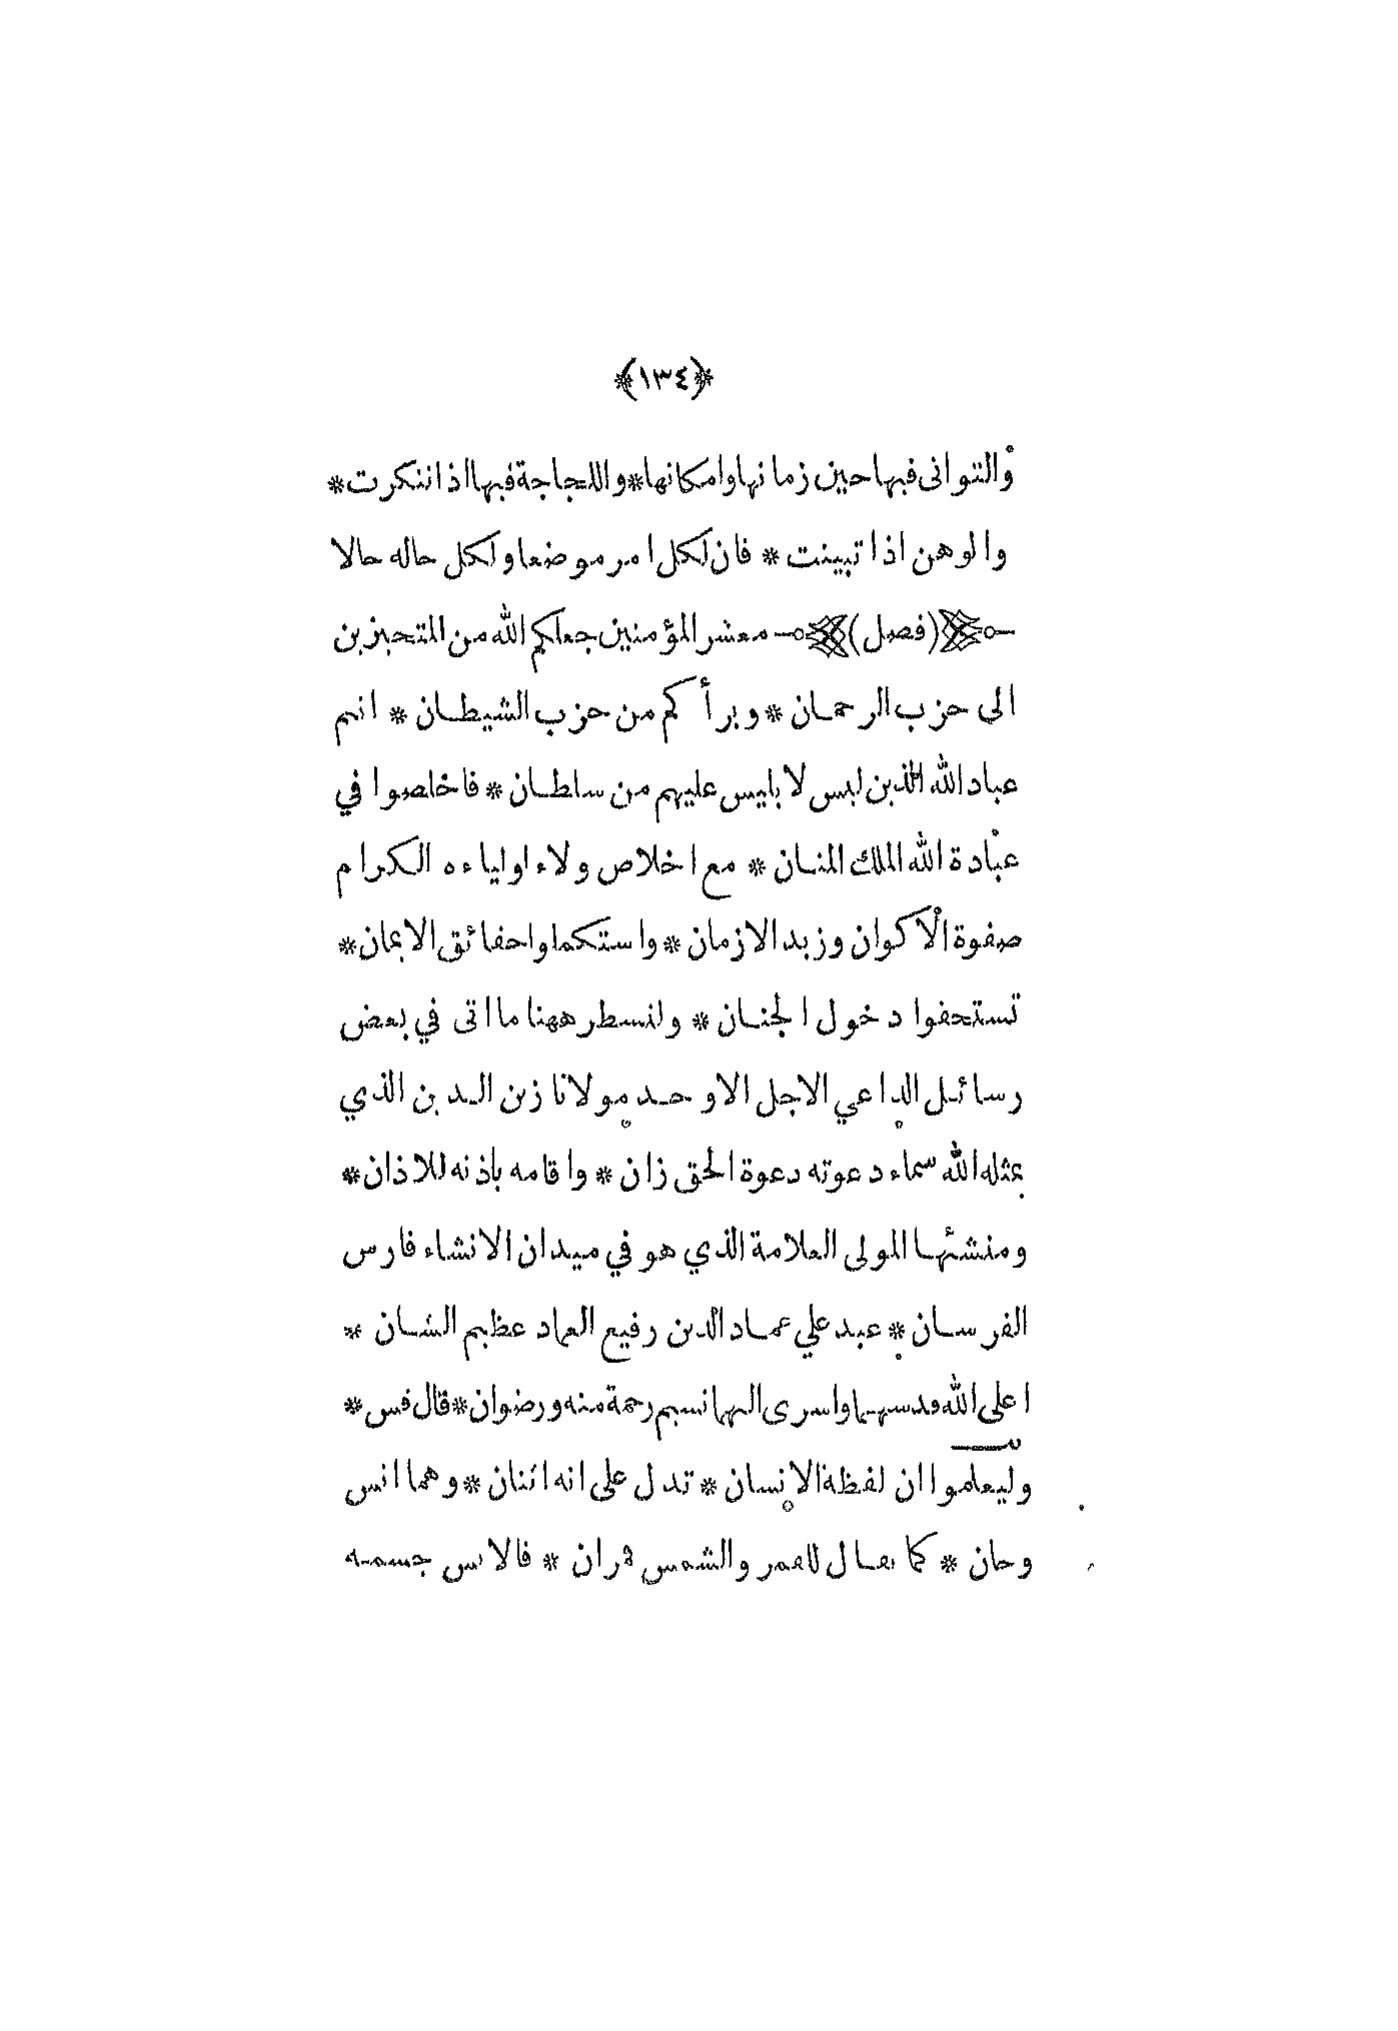 ﴿١٣٤﴾
والتوانى فيها حين زمانها وامكانها * واللجاجة فيها اذا تنكرت *
والوهن اذا تبينت * فان لكل امر موضعا ولكل حاله حالا
(فصل) معشر المؤمنين جعلكم الله من المتحيزين
الى حزب الرحمان * وبرأكم من حزب الشيطان * انتم
عباد الله الذين ليس لابليس عليهم من سلطان * فاخلصوا في
عبادة الله الملك المنان * مع اخلاص ولاء اولياءه الكرام
صفوة الاكوان وزبد الازمان * واستكملوا حقائق الايمان *
تستحقوا دخول الجنان * ولنسطر ههنا ما اتى في بعض
رسائل الداعي الاجل الاوحد مولانا زين الدين الذي
بمثله الله سماء دعوته دعوة الحق زان * واقامه باذنه للاذان *
ومنشئها المولى العلامة الذي هو في ميدان الانشاء فارس
الفرسان * عبد علي عماد الدين رفيع العماد عظيم الشان *
اعلى الله قدسهما واسرى اليهما نسيم رحمة منه ورضوان * قال قس *
وليعلموا ان لفظة الانسان * تدل على انه اثنان * وهما انس
وجان * كما يقال للقمر والشمس قمران * فالانس جسمه